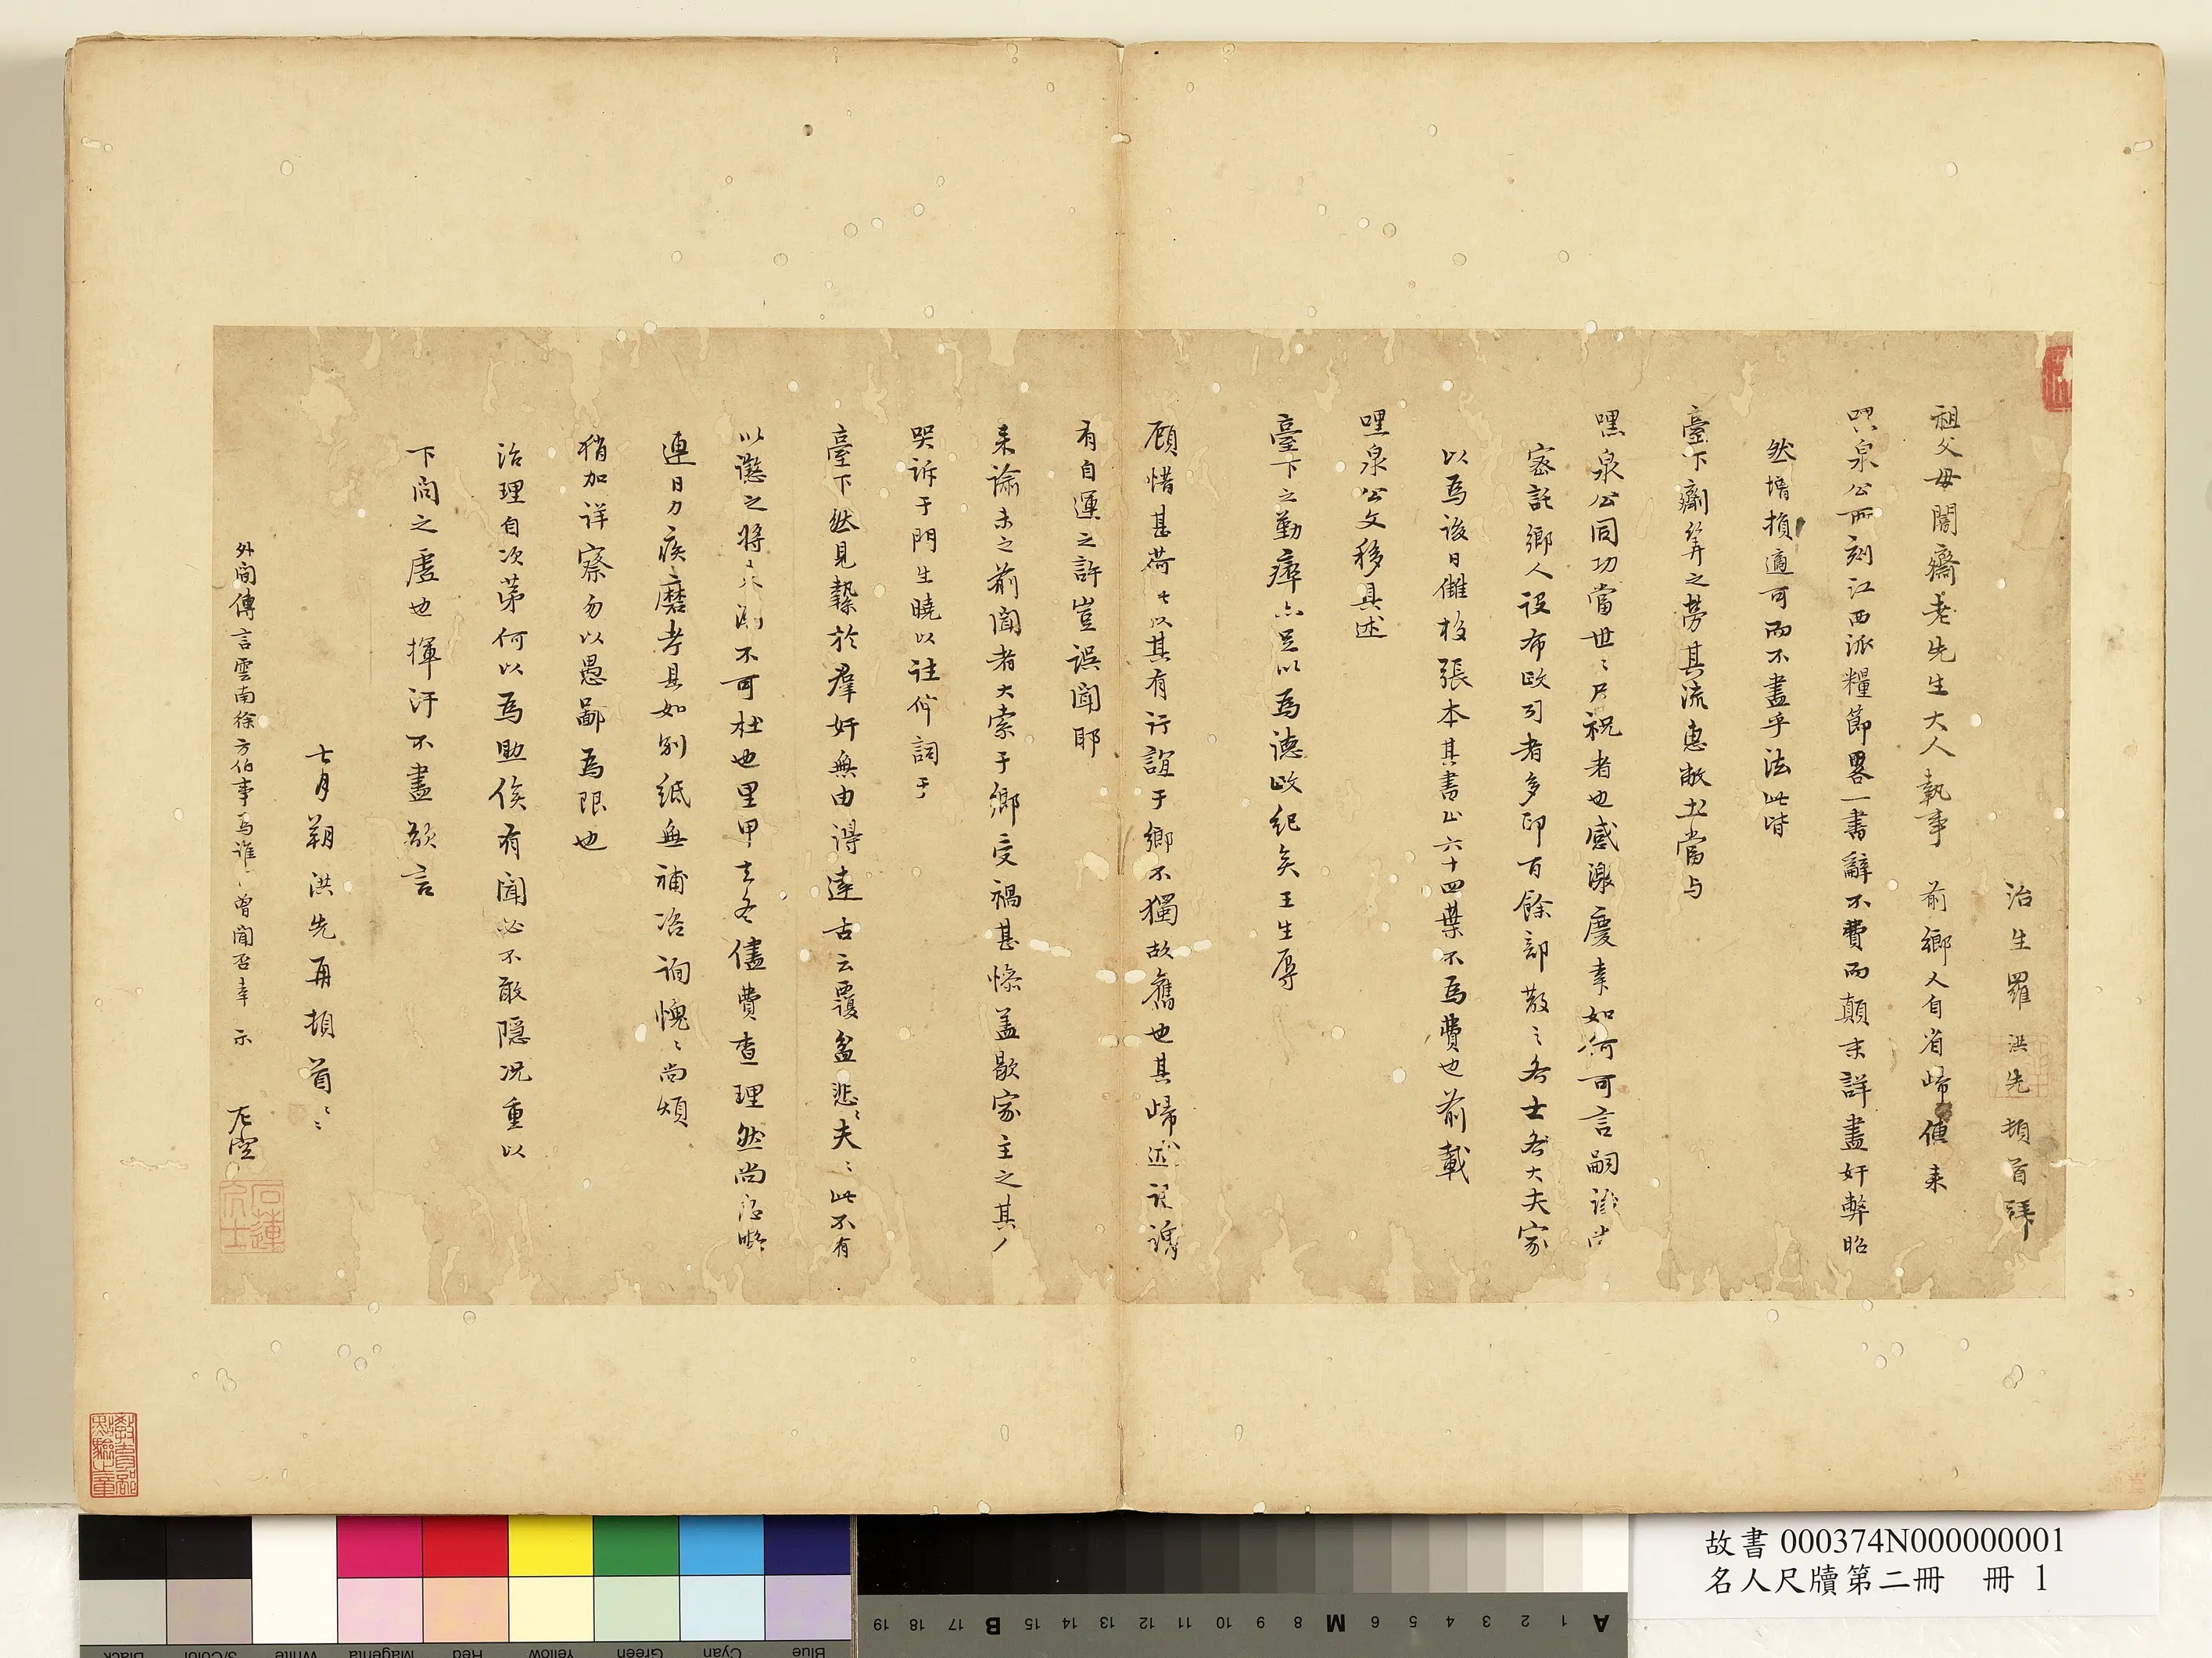 治生羅洪先頓首拜
祖父母闇齋老先生大人執事 前鄉人自省歸傳來
泉公所刻江西派糧節畧一書辭不費而顛末詳盡奸弊昭
然増損適可而不盡乎法此皆
臺下劑筭之勞其流惠敝土當与
泉公同功當世〻尸祝者也感激慶幸如何可言嗣
密託鄉人設布政司者多印百餘部散〻各士各大夫家
以爲後日讎校張本其書止六十四葉不爲費也前載
泉公文移具述
臺下之勤瘁亦足以爲德政紀矣王生辱
顧惜甚荷〻以其有行誼于鄉不獨故舊也其歸
有自運之許豈誤聞耶
來諭未之前聞者大索于鄉受禍甚慘蓋歇家主之其
哭訴于門生曉以注仰詞于
臺下然見縶於群奸無由得達古云覆盆悲〻夫〻此不有
以懲之將來不可杜也里甲支冬儘費查理然尚
連日力疾磨考具如別紙無補冶詢愧〻尚煩
稍加詳察勿以愚鄙爲限也
治理自次第何以爲助俟有聞必不敢隱况重以
下問之虛也揮汗不盡欲言
七月朔洪先再頓首〻〻
外間傳言雲南徐方伯事爲誰〻曾聞否幸示
左空
石蓮
故書 000374N000000001
名人尺牘第二冊 冊 1
A 1 2 3 4 5 6 M 8 9 10 11 12 13 14 15 B 17 18 19
Blue Cyan Green Yellow Red Magenta White 3/Color Black